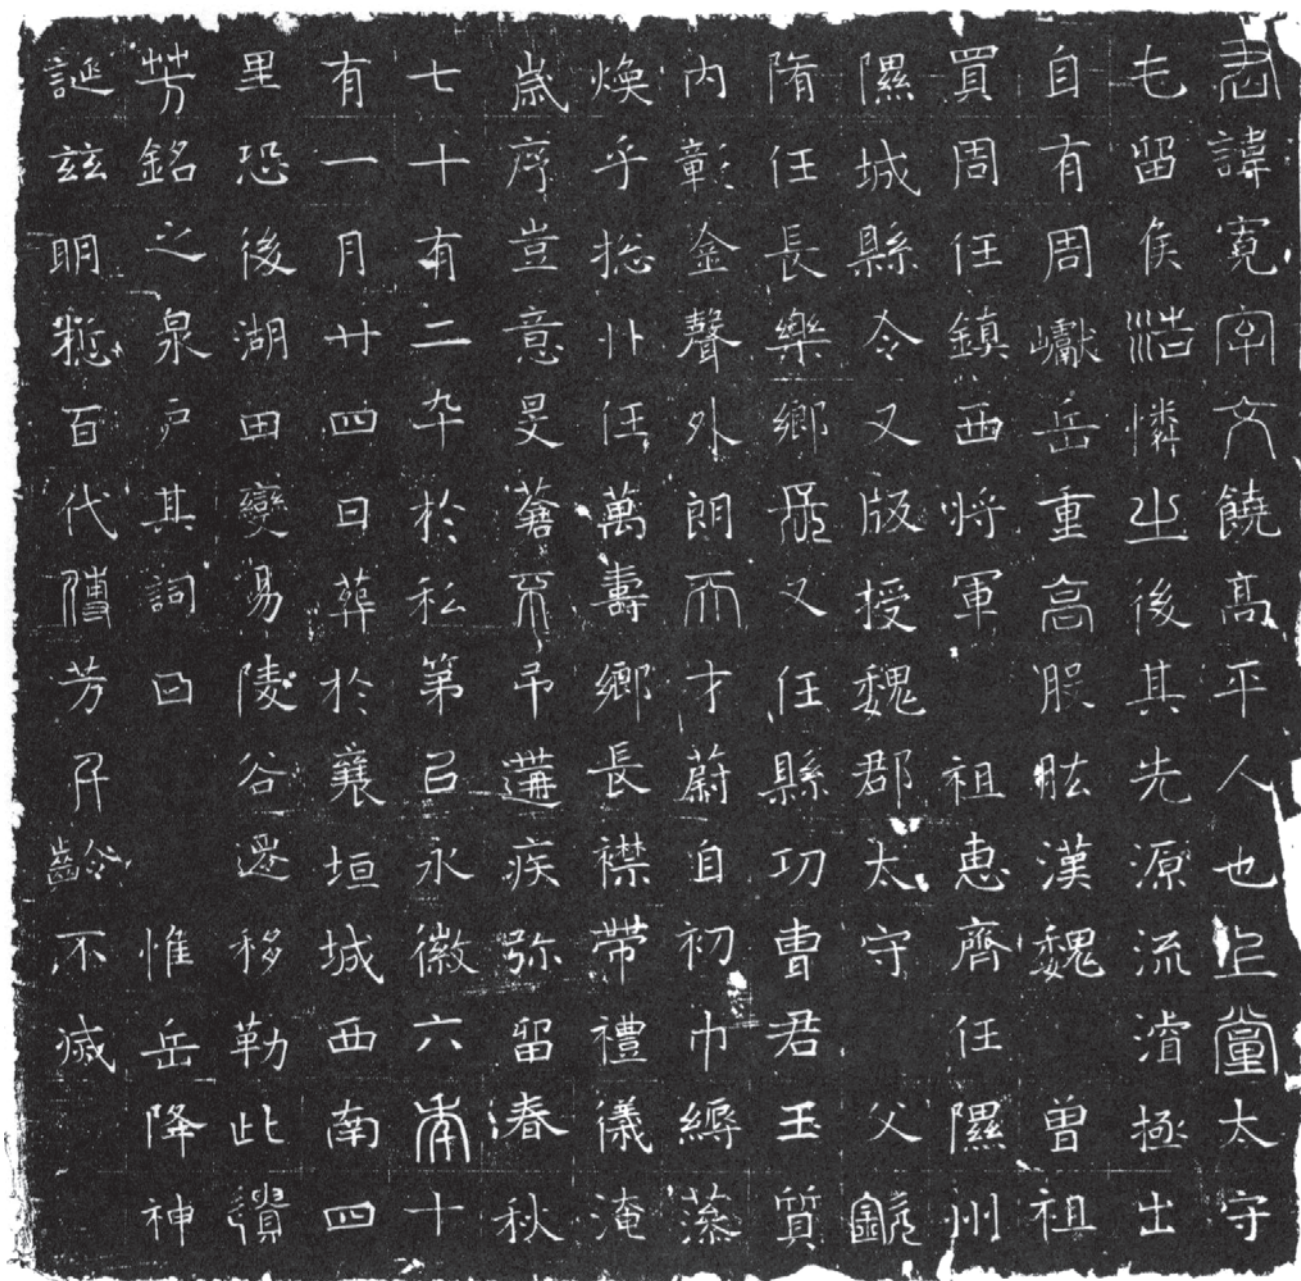 君諱寬字文饒高平人也上黨太守
七留侯浩憐之後其先源流濬極出
自有周巘岳重高股肱漢魏曾祖
買周任鎮西将軍祖惠齊任隰州
隰城縣令又版授魏郡太守父
隋任長樂鄉又任縣功曹君玉質
內彰金聲外朗天才蔚自初巾縟藻
煥乎捴丱任萬壽鄉長襟帶禮儀淹
歲序豈意旻蒼不弔遘疾弥留春秋
七十有二卒於私第以永徽六年十
有一月廿四日葬於襄垣城西南四
里恐後湖田變易陵谷遷移勒此遺
芳銘之泉戶其詞曰惟岳降神
誕茲明悊百代傳芳千齡不滅